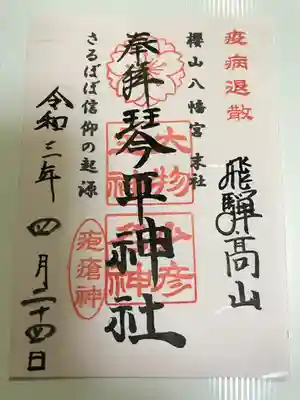 疫病退散
飛騨高山
櫻山八幡宮 末社
奉拝 琴平神社
大物主神
少彦名神
さるぼぼ信仰の起源
疱瘡神
令和三年 四月二十四日